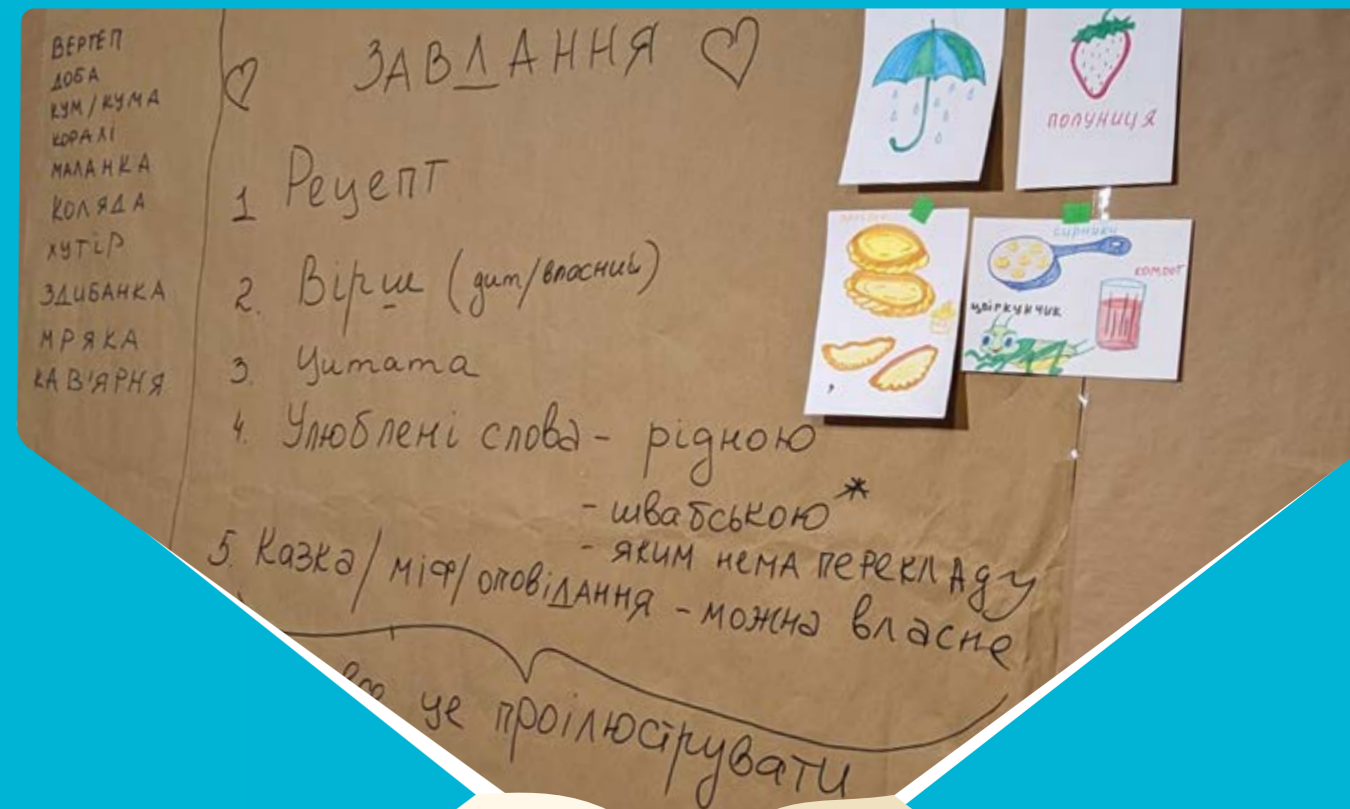 ВЕРТЕП
ДОБА
КУМ/КУМА
КОРАЛІ
МАЛАНКА
КОЛЯДА
ХУТІР
ЗДИБАНКА
МРЯКА
КАВ'ЯРНЯ
ЗАВДАННЯ
1 Рецепт
2. Вірш (дит/власний)
3. Цитата
4. Улюблені слова - рідною
- швабською*
- яким нема перекладу
5. Казка/міф/оповідання - можна власне
це проілюструвати
полуниця
сирники
компот
цвіркунчик